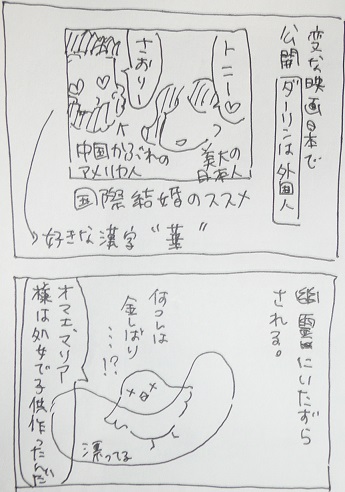 変な映画日本で
公開「ダーリンは外国人
トニー♡
さおりー
中国かぶれの
アメリカ人
日本人
国際結婚のススメ
好きな漢字“華”
幽霊にいたずら
される。
何コレは
金しばり
…!?
オマエ、マリア
様は処女で子供作ったんだ
漂ってる